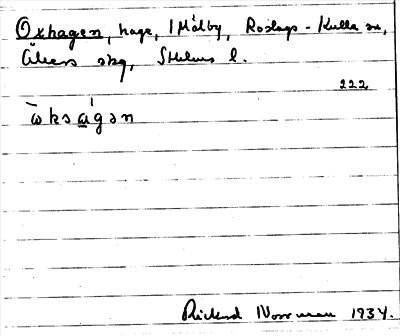 Oxhagen, hage, 1 Målby, Roslags-Kulla sn,
Åkers skg, Sthlms l.
222
ὼksa̲gən
Rickard Norrman 1934.